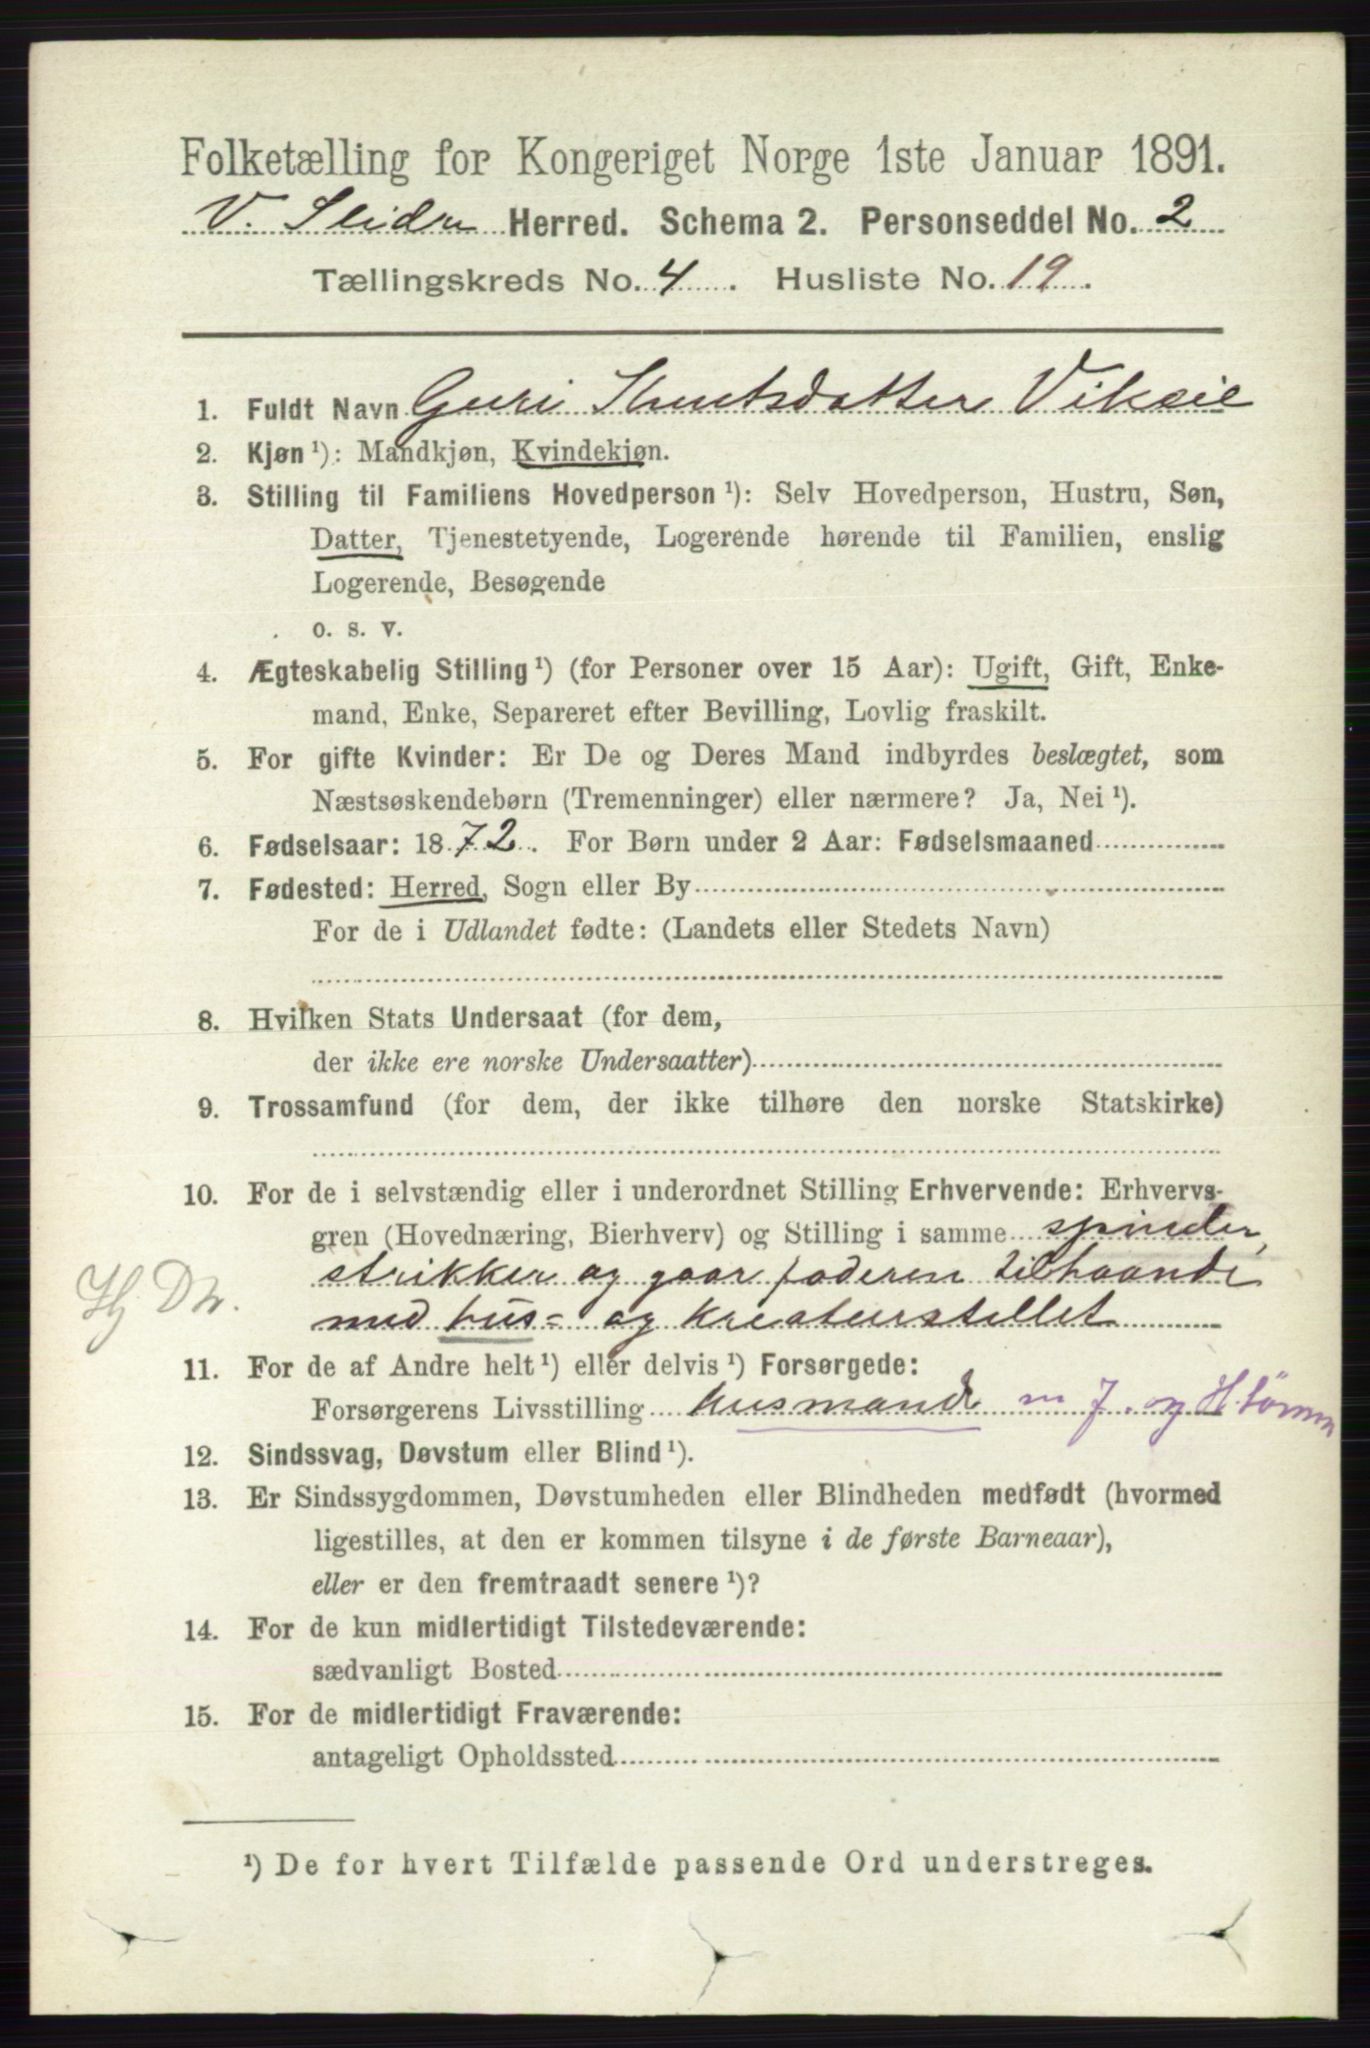 Folketælling for Kongeriget Norge 1ste Januar 1891.
V. Slidre Herred. Schema 2. Personseddel No. 2
Tællingskreds No. 4. Husliste No. 19.
1. Fuldt Navn Guri Knutsdatter Viksie
2. Kjøn ¹): Mandkjøn, Kvindekjøn.
3. Stilling til Familiens Hovedperson ¹): Selv Hovedperson, Hustru, Søn,
Datter, Tjenestetyende, Logerende hørende til Familien, enslig
Logerende, Besøgende
o. s. v.
4. Ægteskabelig Stilling ¹) (for Personer over 15 Aar): Ugift, Gift, Enke-
mand, Enke, Separeret efter Bevilling, Lovlig fraskilt.
5. For gifte Kvinder: Er De og Deres Mand indbyrdes beslægtet, som
Næstsøskendebørn (Tremenninger) eller nærmere? Ja, Nei ¹).
6. Fødselsaar: 1872. For Børn under 2 Aar: Fødselsmaaned
7. Fødested: Herred, Sogn eller By
For de i Udlandet fødte: (Landets eller Stedets Navn)
8. Hvilken Stats Undersaat (for dem,
der ikke ere norske Undersaatter)
9. Trossamfund (for dem, der ikke tilhøre den norske Statskirke)
10. For de i selvstændig eller i underordnet Stilling Erhvervende: Erhvervs-
gren (Hovednæring, Bierhverv) og Stilling i samme spinder,
strikker og gaar faderen tilhaande
Hj Dtr.
med hus- og kreaturstellet
11. For de af Andre helt ¹) eller delvis ¹) Forsørgede:
Forsørgerens Livsstilling husmand m J. og
12. Sindssvag, Døvstum eller Blind ¹).
13. Er Sindssygdommen, Døvstumheden eller Blindheden medfødt (hvormed
ligestilles, at den er kommen tilsyne i de første Barneaar),
eller er den fremtraadt senere ¹)?
14. For de kun midlertidigt Tilstedeværende:
sædvanligt Bosted
15. For de midlertidigt Fraværende:
antageligt Opholdssted
¹) De for hvert Tilfælde passende Ord understreges.